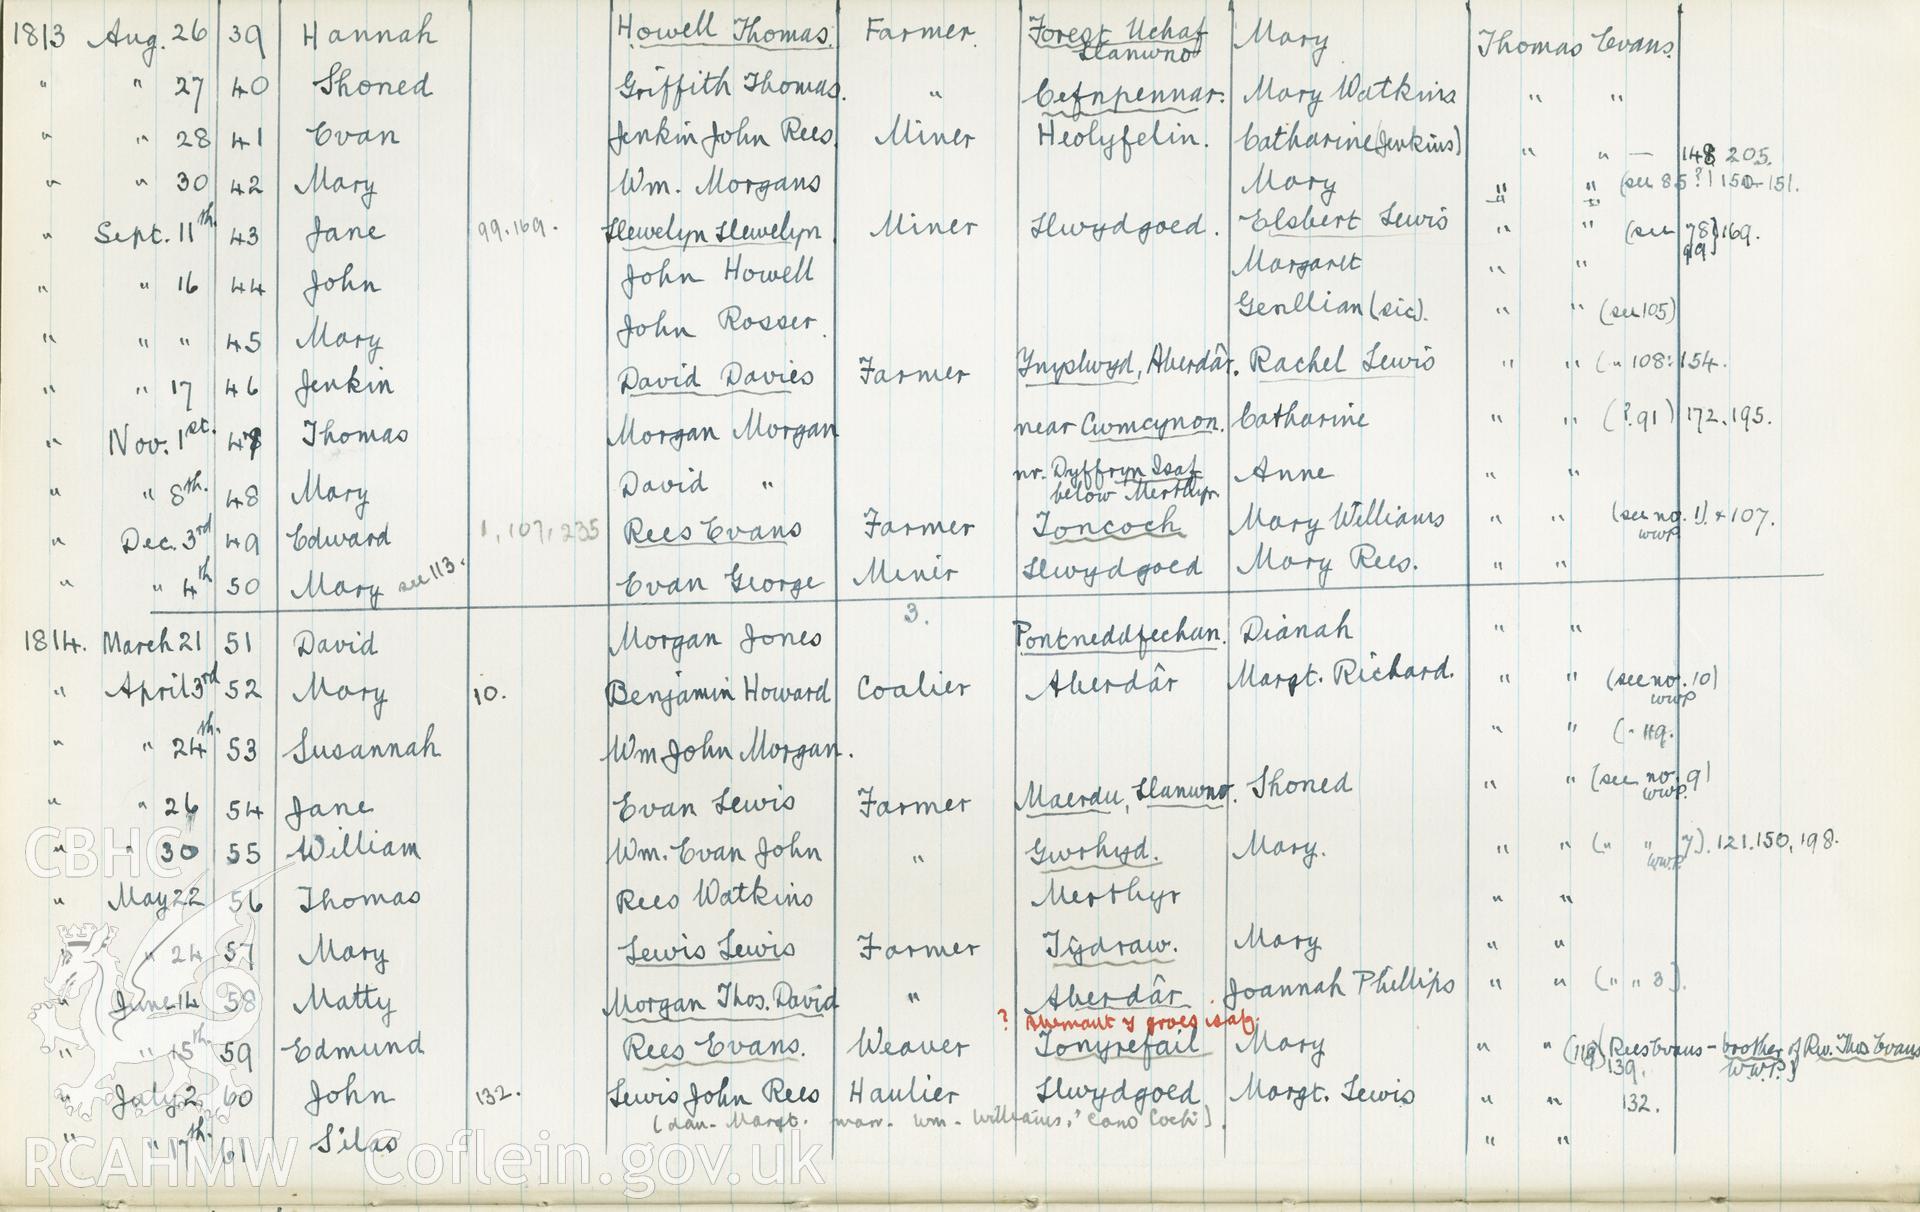 1813 Aug. 26 39 Hannah Howell Thomas. Farmer. Forest Uchaf Mary Thomas Evans.
Llanwno
" " 27 40 Shoned Griffith Thomas. " Cefnpennar. Mary Watkins " "
" " 28 41 Evan Jenkin John Rees. Miner Heolyfelin. Catharine (Jenkins) " " — 148, 205.
" " 30 42 Mary Wm. Morgans Mary " " (see 85?) 150-151.
" Sept. 11th. 43 Jane 99.169. Llewelyn Llewelyn. Miner Llwydgoed. Elsbert Lewis " " (see 78) 169.
99)
" " 16 44 John John Howell Margaret " "
" " " 45 Mary John Rosser. Genllian (sic). " " (see 105)
" " 17 46 Jenkin David Davies Farmer Ynyslwyd, Aberdâr. Rachel Lewis " " (" 108: 154.
" Nov. 1st. 47 Thomas Morgan Morgan near Cwmcynon. Catharine " " (?.91) 172.195.
" " 8th. 48 Mary David " nr. Dyffryn Isaf Anne " "
below Merthyr.
" Dec. 3rd 49 Edward 1, 107, 235 Rees Evans Farmer Toncoch Mary Williams " " (see no. 1). + 107.
WWP.
" " 4th 50 Mary see 113. Evan George Miner Llwydgoed Mary Rees. " "
3.
1814. March 21 51 David Morgan Jones Pontneddfechan. Dianah " "
" April 3rd 52 Mary 10. Benjamin Howard Coalier Aberdâr Margt. Richard. " " (see no. 10)
WWP
" " 24th. 53 Susannah Wm John Morgan. " " (" 119.
" " 26 54 Jane Evan Lewis Farmer Maerdu, Llanwno. Shoned " " (see no. 9)
WWP.
" " 30 55 William Wm. Evan John " Gwrhyd. Mary. " " (" " 7). 121.150, 198.
WWP.
" May 22 56 Thomas Rees Watkins Merthyr " "
" " 24 57 Mary Lewis Lewis Farmer Tŷdraw. Mary " "
" June 14 58 Matty Morgan Thos. David " Aberdâr. Joannah Phillips " " (" " 3).
? Abernant y groes isaf.
" " 15th. 59 Edmund Rees Evans. Weaver Tonyrefail Mary " " (119) Rees Evans - brother of Rev. Thos Evans
139. W.W.P.)
" July 2 60 John 132. Lewis John Rees Haulier Llwydgoed Margt. Lewis " " 132.
(dau. Margt. marr. Wm. Williams, 'Carw Coch').
" " 17th. 61 Silas " "
CBHC
RCAHMW Coflein.gov.uk